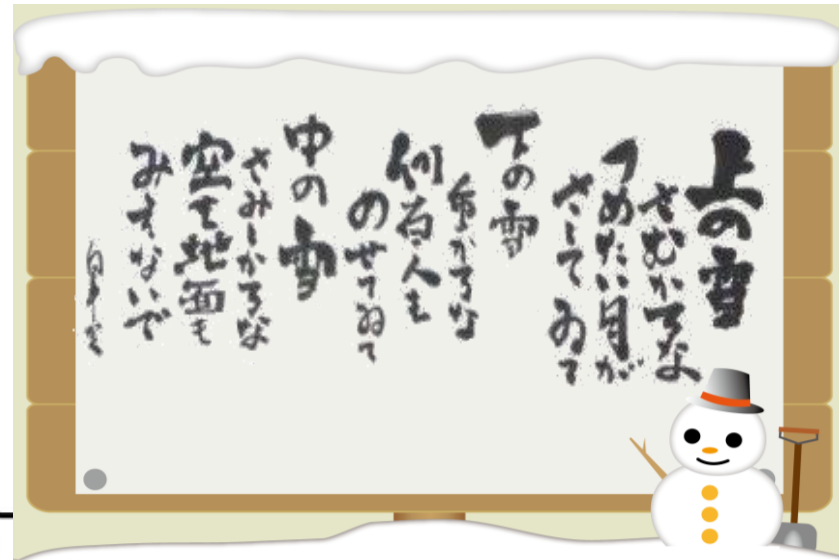 上の雪
さむかろな
つめたい月が
さしてゐて
下の雪
重かろな
何百人も
のせてゐて
中の雪
さみしかろな
空も地面も
みえないで